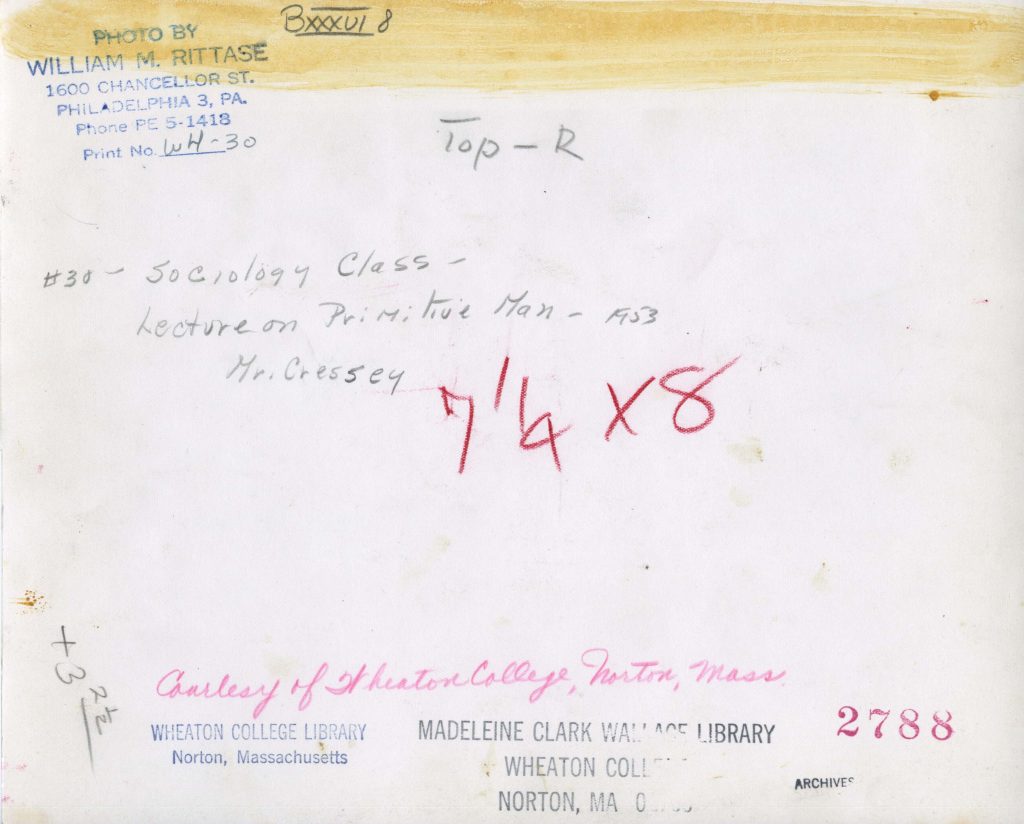 BXXXVI 8
PHOTO BY
WILLIAM M. RITTASE
1600 CHANCELLOR ST.
PHILADELPHIA 3, PA.
Phone PE 5-1418
Print No. WH-30
Top - R
#30 - Sociology Class -
Lecture on Primitive Man - 1953
Mr. Cressey
7 1/4 X 8
+3
2 1/2
Courtesy of Wheaton College, Norton, Mass.
WHEATON COLLEGE LIBRARY
Norton, Massachusetts
MADELEINE CLARK WALLACE LIBRARY
WHEATON COLL
NORTON, MA
2788
ARCHIVES